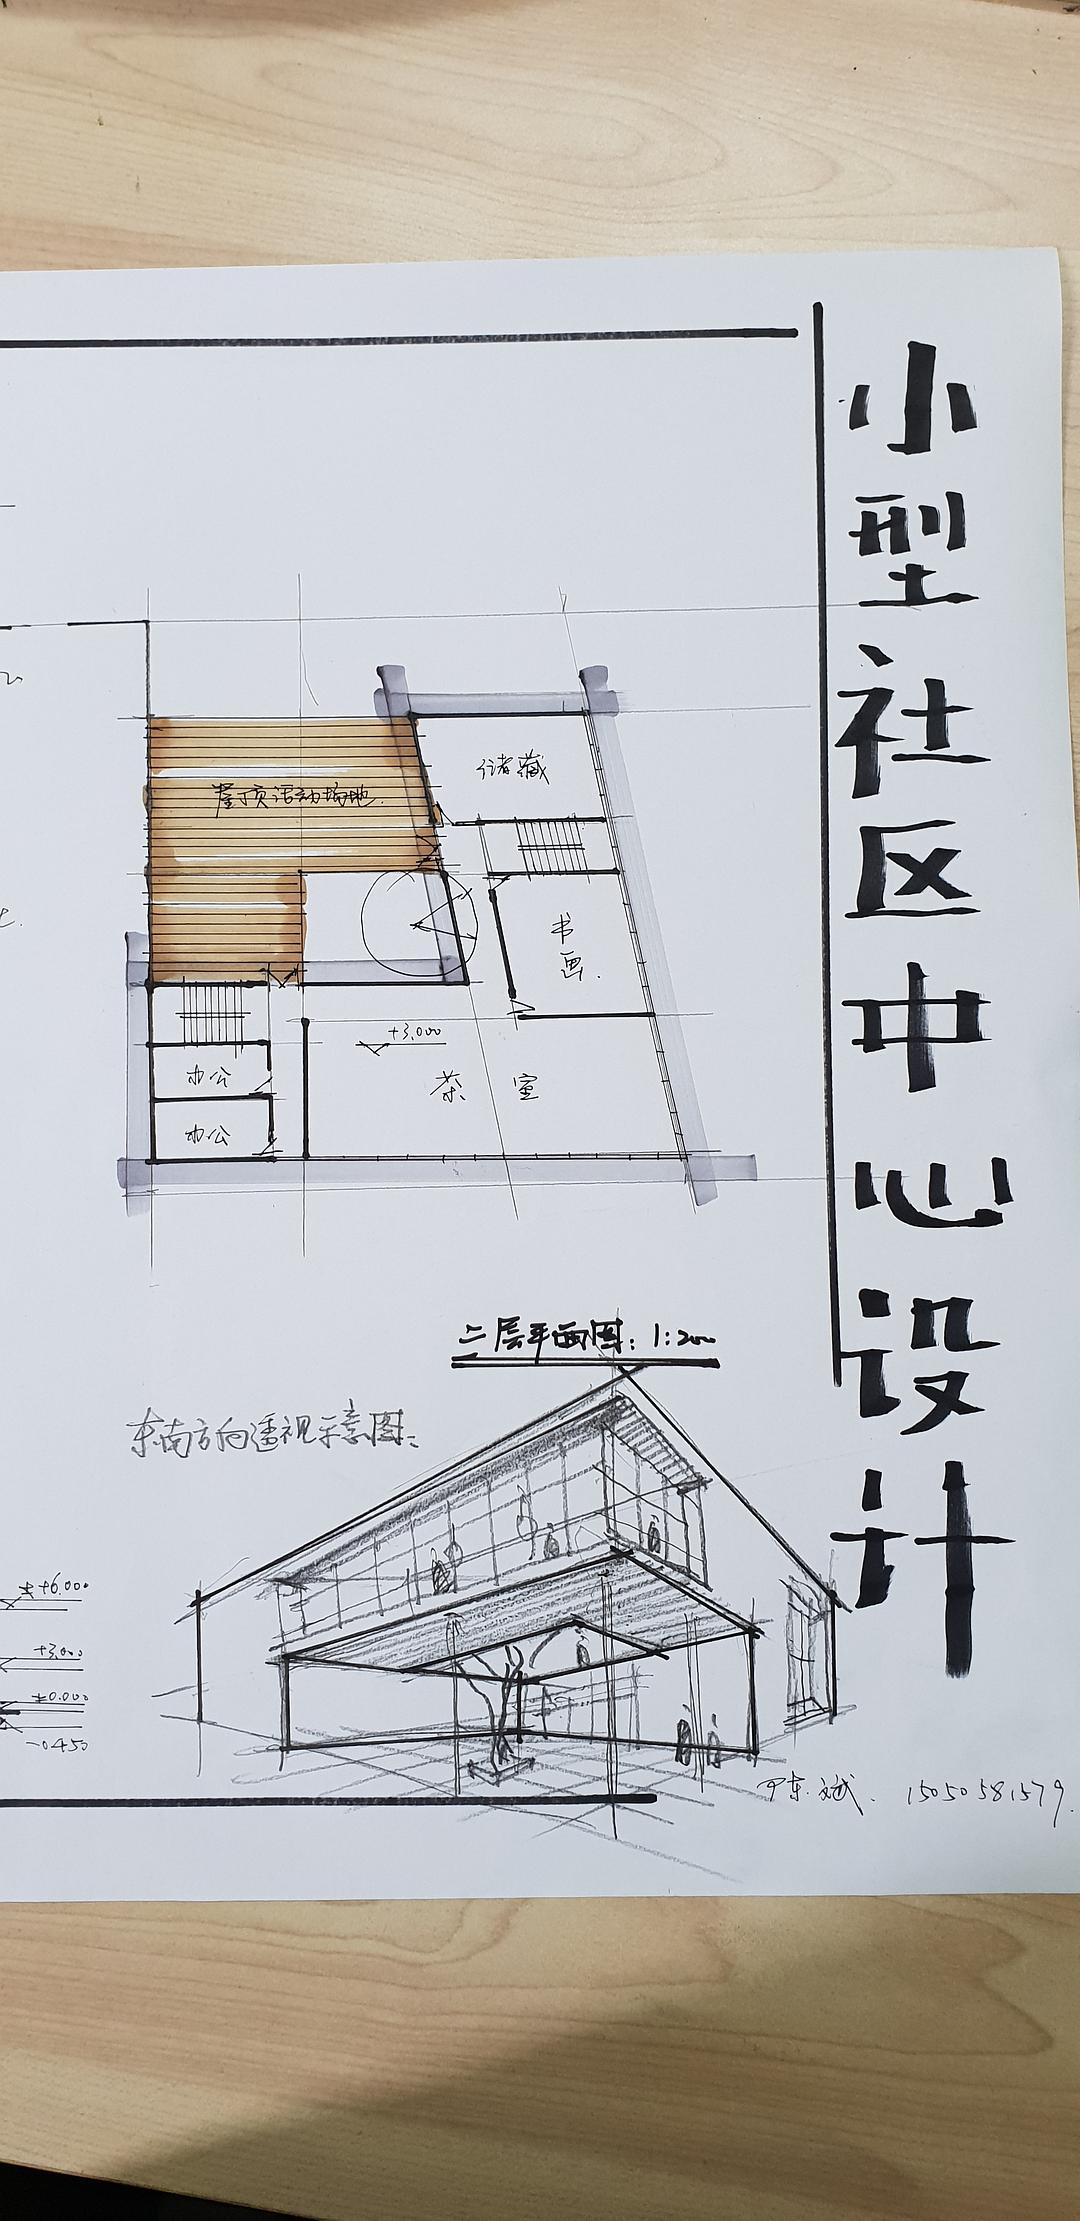 小型社区中心设计
储藏
屋顶活动场地
书画
+3.000
茶室
办公
办公
二层平面图：1:200
东南方向透视示意图：
+6.000
+3.000
±0.000
-0.450
15050581579